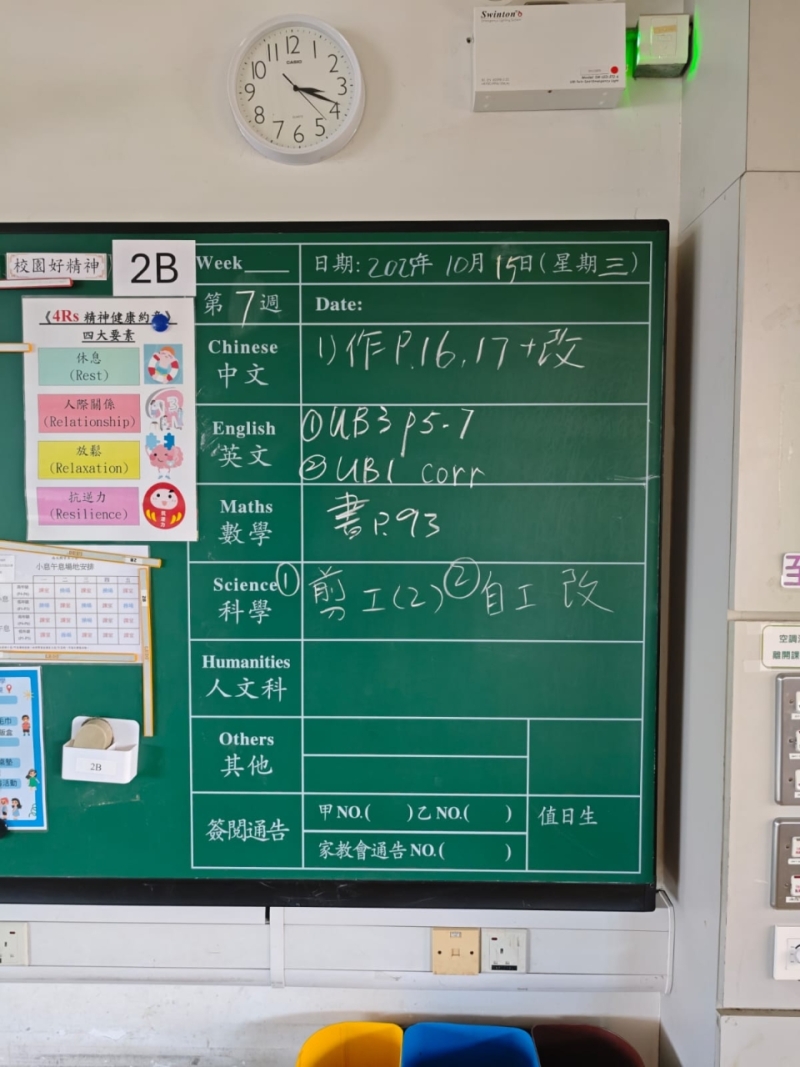 12
1
2
3
4
5
6
7
8
9
10
11
CASIO
QUARTZ
Swinton
校園好精神
2B
《4Rs 精神健康約章》
四大要素
休息
(Rest)
人際關係
(Relationship)
放鬆
(Relaxation)
抗逆力
(Resilience)
小息午息場地安排
2B
Week____
日期: 2025年 10月 15日(星期三)
第7週
Date:
Chinese
中文
1) 作 P.16, 17 + 改
English
英文
① UB3 p5-7
② UB1 corr
Maths
數學
書 P.93
Science
科學
① 剪工(2) ② 自工 改
Humanities
人文科
Others
其他
簽閱通告
甲NO.( )乙NO.( )
值日生
家教會通告NO.( )
空調
離開課